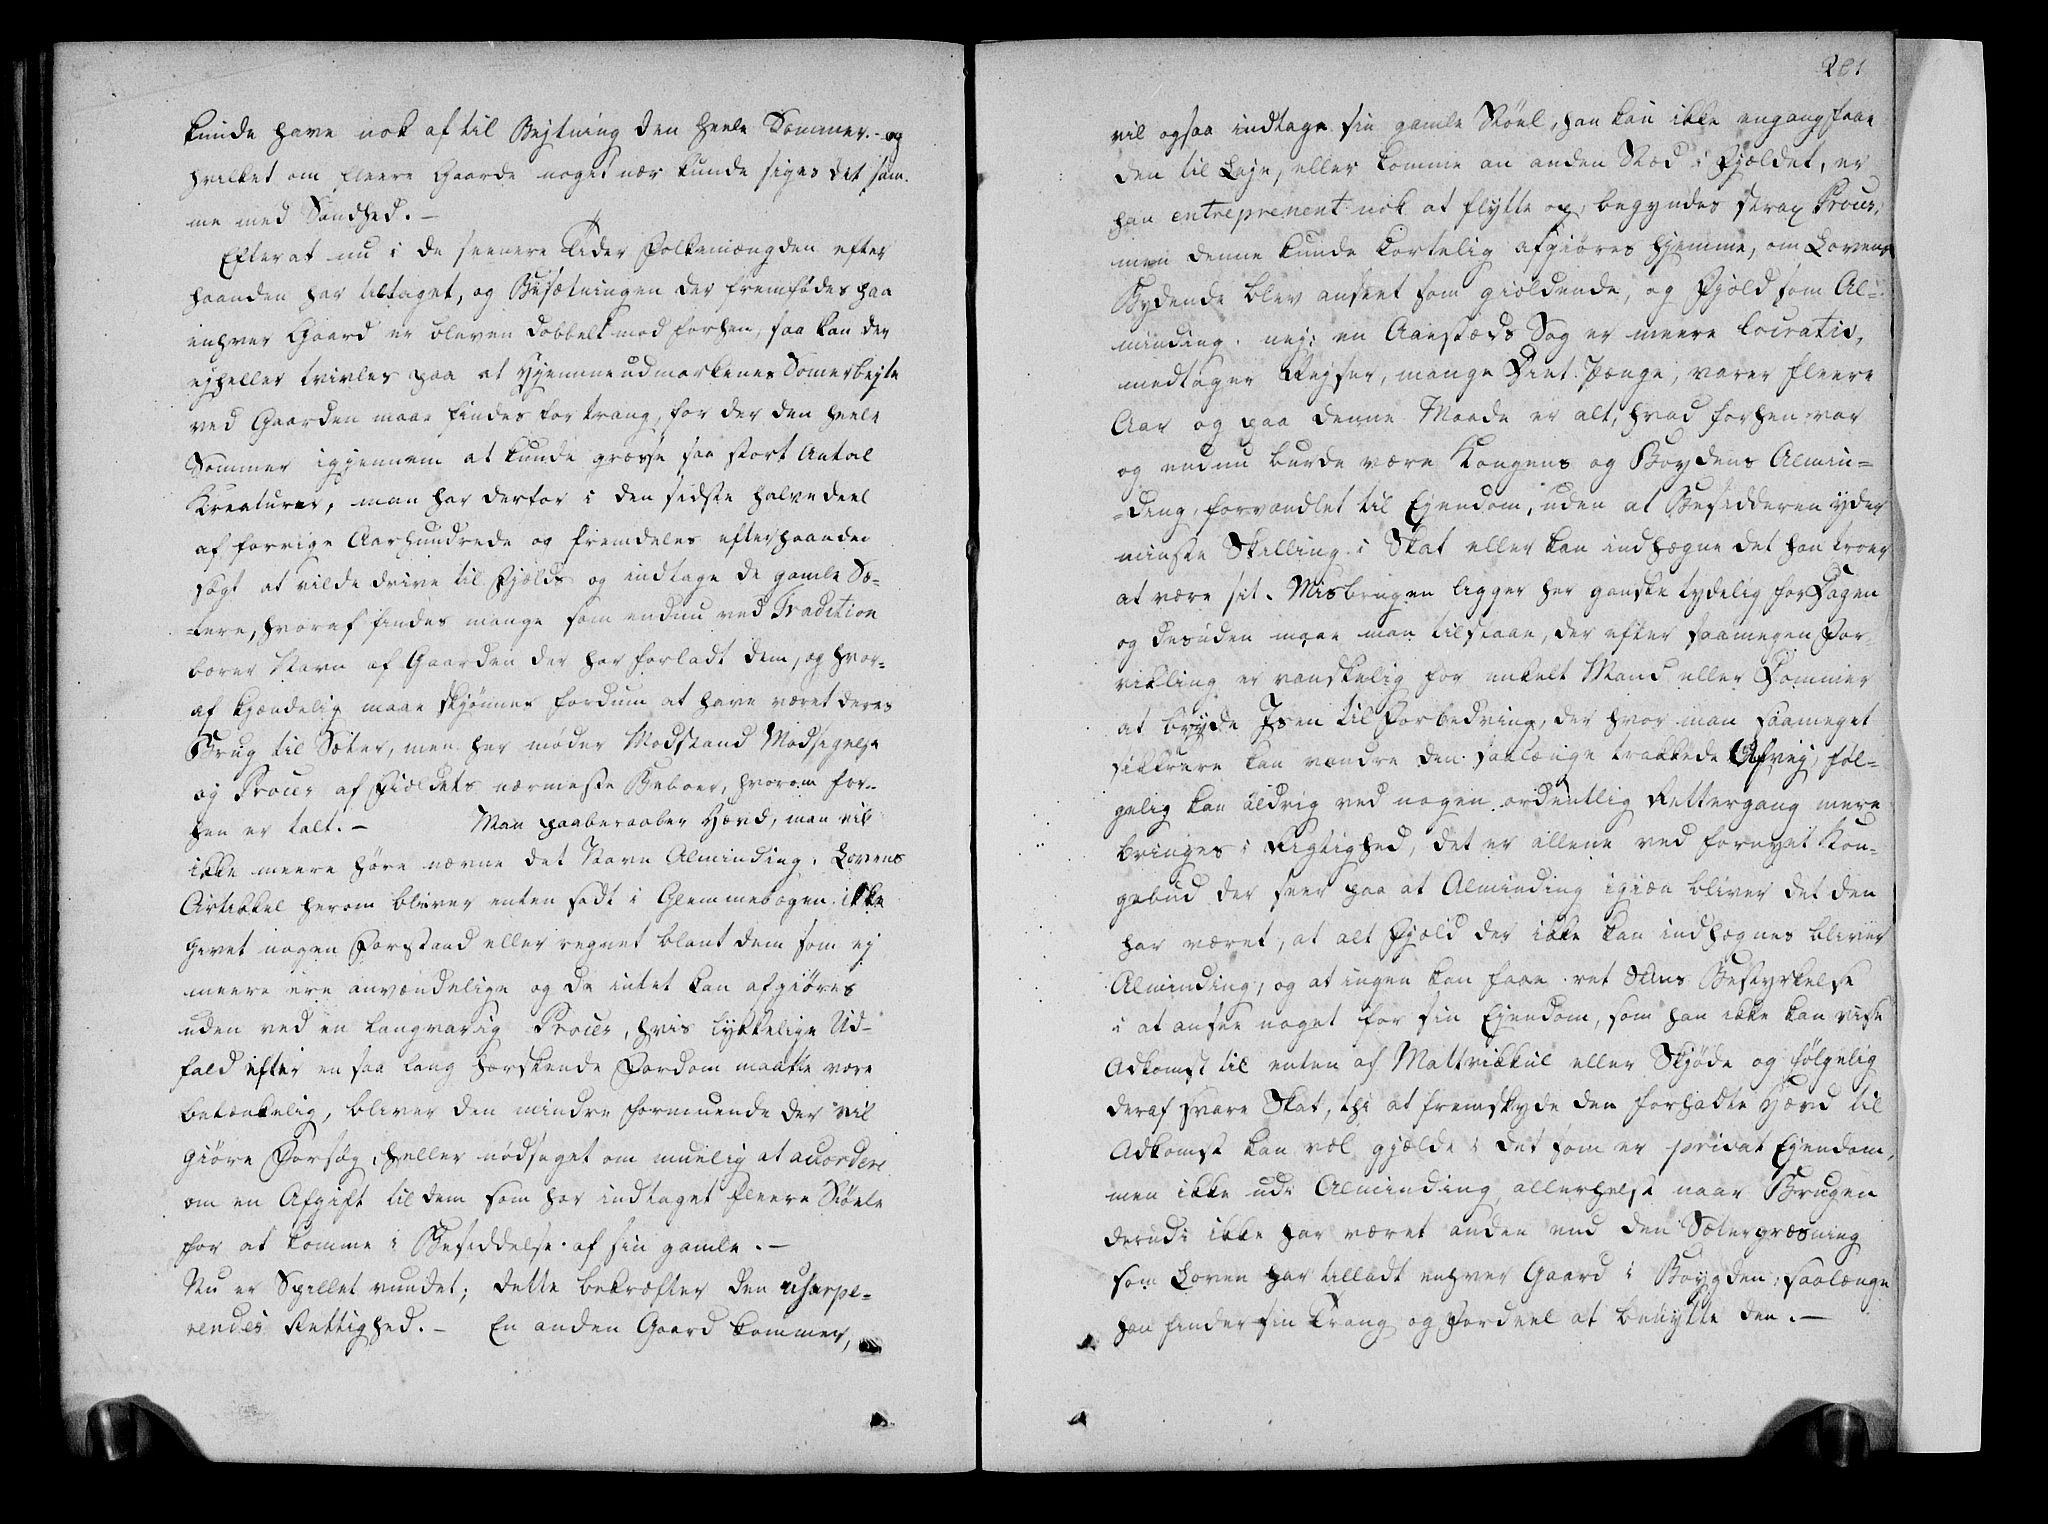 kunde have nok af til Bejtning den heele Sommer. og
hvilket om fleere Gaarde noget nær kunde siges det sam-
me med Sandhed. –
Efterat nu i de seenere Tider Folkemængden efter
haanden har tiltaget, og Besætningen der fremfødes paa
enhver Gaard er bleven dobbelt mod forhen, saa kan der
ejheller tvivles paa at Hjemmeudmarkenes Somerbejte
ved Gaarden maae findes for trang, for der den heele
Sommer igjennem at kunde græsse saa stort Antal
Kreaturer, man har derfor i den sidste halvedeel
af forrige Aarhundrede og fremdeles efterhaanden
søgt at vilde drive til Fjelds og indtage de gamle Sæ-
tere, hvoraf findes mange som endnu ved Tradition
bærer Navn af Gaarden der har forladt dem, og hvor-
af kjændelig maae skjønnes fordum at have været deres
Brug til Sæter, men her møder Modstand Modsigelse
og Proces af Fieldets nærmeste Beboer, hvorom for-
hen er talt. – Man paaberaaber Hævd, man vil
ikke meere høre nævne det Navn Alminding. Lovens
Artikkel herom bliver enten sadt i Glemmebogen ikke
givet nogen Forstand eller regnet blant dem som ej
meere ere anvændelige og da intet kan afgiøres
uden ved en langvarig Proces, hvis lykkelige Ud-
fald efter en saa lang herskende Fordom maatte være
betænkelig, bliver den mindre formuende der vil
giøre Forsøg, heller nødsaget om muelig at accordere
om en Afgift til dem som har indtaget fleere Støele
for at komme i Besiddelse af sin gamle. –
Nu er Spillet vundet; dette bekræfter den usurpe-
rendes Rettighed. – En anden Gaard kommer,
201
vil ogsaa indtage sin gamle Støel, han kan ikke engang faae
den til Leje, eller komme an anden Stæd i Fjeldet, er
han entreprenent nok at flytte op, begyndes strax Proces,
men denne kunde kortelig afgiøres hjemme, om Lovens
Bydende blev anseet som gieldende, og Fjeld som Al-
minding. nej: en Aastæds Sag er meere locrativ,
medtager Rejser, mange Diet. Penge, varer fleere
Aar og paa denne Maade er alt, hvad forhen var
og endnu burde være Kongens og Bøydens Almin-
ding, forvandlet til Ejendom, uden at Besidderen yder
minste Skilling i Skat eller kan indhægne det han troer
at være sit. Misbrugen ligger her ganske tydelig for Dagen
og desuden maae man tilstaae, der efter saamegen For-
vikling er vanskelig for enkelt Mand eller Dommer
at bryde Isen til Forbedring, der hvor man saameget
sikkrere kan vandre den saalænge trakkede Afvej, føl-
gelig kan aldrig ved nogen ordentlig Rettergang mere
bringes i Rigtighed, det er allene ved fornyet Kon-
gebud der seer paa at Alminding igien bliver det den
har været, at alt Fjeld der ikke kan indhægnes bliver
Alminding, og at ingen kan faae ret Bestyrkelse
i at ansee noget for sin Ejendom, som han ikke kan vise
Adkomst til enten af Mattrikkul eller Skjøde og følgelig
deraf svare Skat, thi at fremskyde den forhadte Hævd til
Adkomst kan vel gjelde i det som er privat Ejendom,
men ikke udi Alminding, allerhelst naar Brugen
derudi ikke har været anden end den Sætergræsning
som Loven har tilladt enhver Gaard i Bøygden, saalænge
han finder sin Trang og Fordeel at benytte den. –